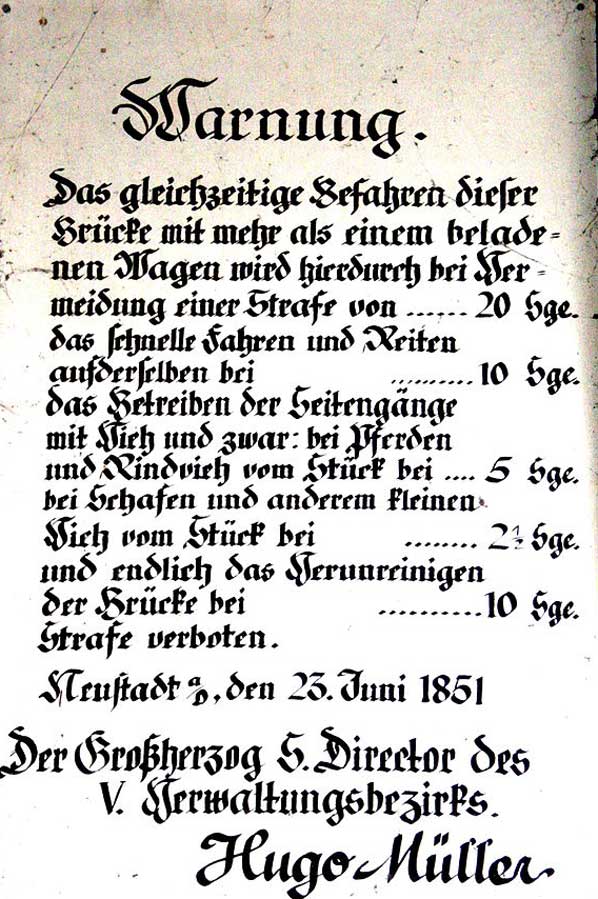 Warnung.
Das gleichzeitige Befahren dieser
Brücke mit mehr als einem belade=
nen Wagen wird hierdurch bei Ver=
meidung einer Strafe von ...... 20 Sge.
das schnelle Fahren und Reiten
aufderselben bei .......... 10 Sge.
das Betreiben der Seitengänge
mit Vieh und zwar: bei Pferden
und Rindvieh vom Stück bei .... 5 Sge.
bei Schafen und anderem kleinen
Vieh vom Stück bei ........ 2½ Sge.
und endlich das Verunreinigen
der Brücke bei ........... 10 Sge.
Strafe verboten.
Neustadt a/D, den 23. Juni 1851
Der Großherzog S. Director des
V. Verwaltungsbezirks.
Hugo Müller.